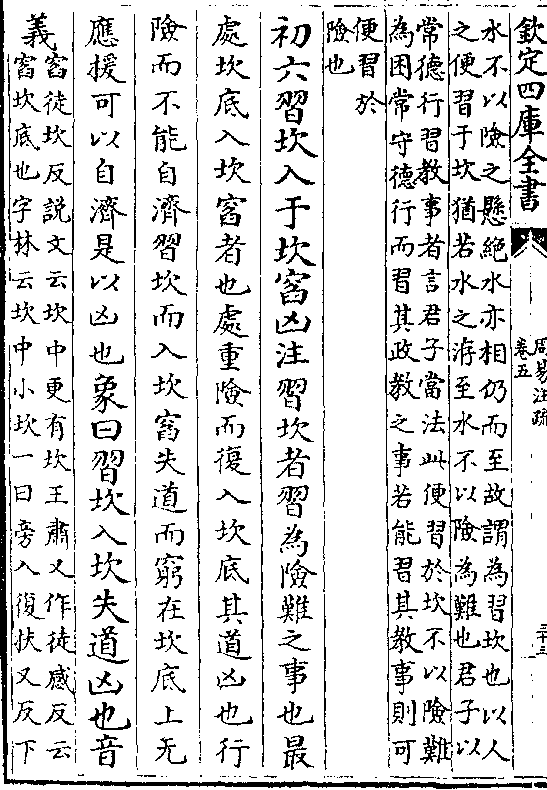 欽定四庫全書
周易注疏
卷五
水不以險之懸絶水亦相仍而至故謂為習坎也以人
之便習于坎猶若水之洊至水不以險為難也君子以
常德行習教事者言君子當法此便習於坎不以險難
為困常守德行而習其政教之事若能習其教事則可
便習於
險也
初六習坎入于坎窞凶注習坎者習為險難之事也最
處坎底入坎窞者也處重險而復入坎底其道凶也行
險而不能自濟習坎而入坎窞失道而窮在坎底上无
應援可以自濟是以凶也象曰習坎入坎失道凶也音
義窞徒坎反説文云坎中更有坎王肅又作徒感反云
窞坎底也字林云坎中小坎一曰旁入復扶又反下